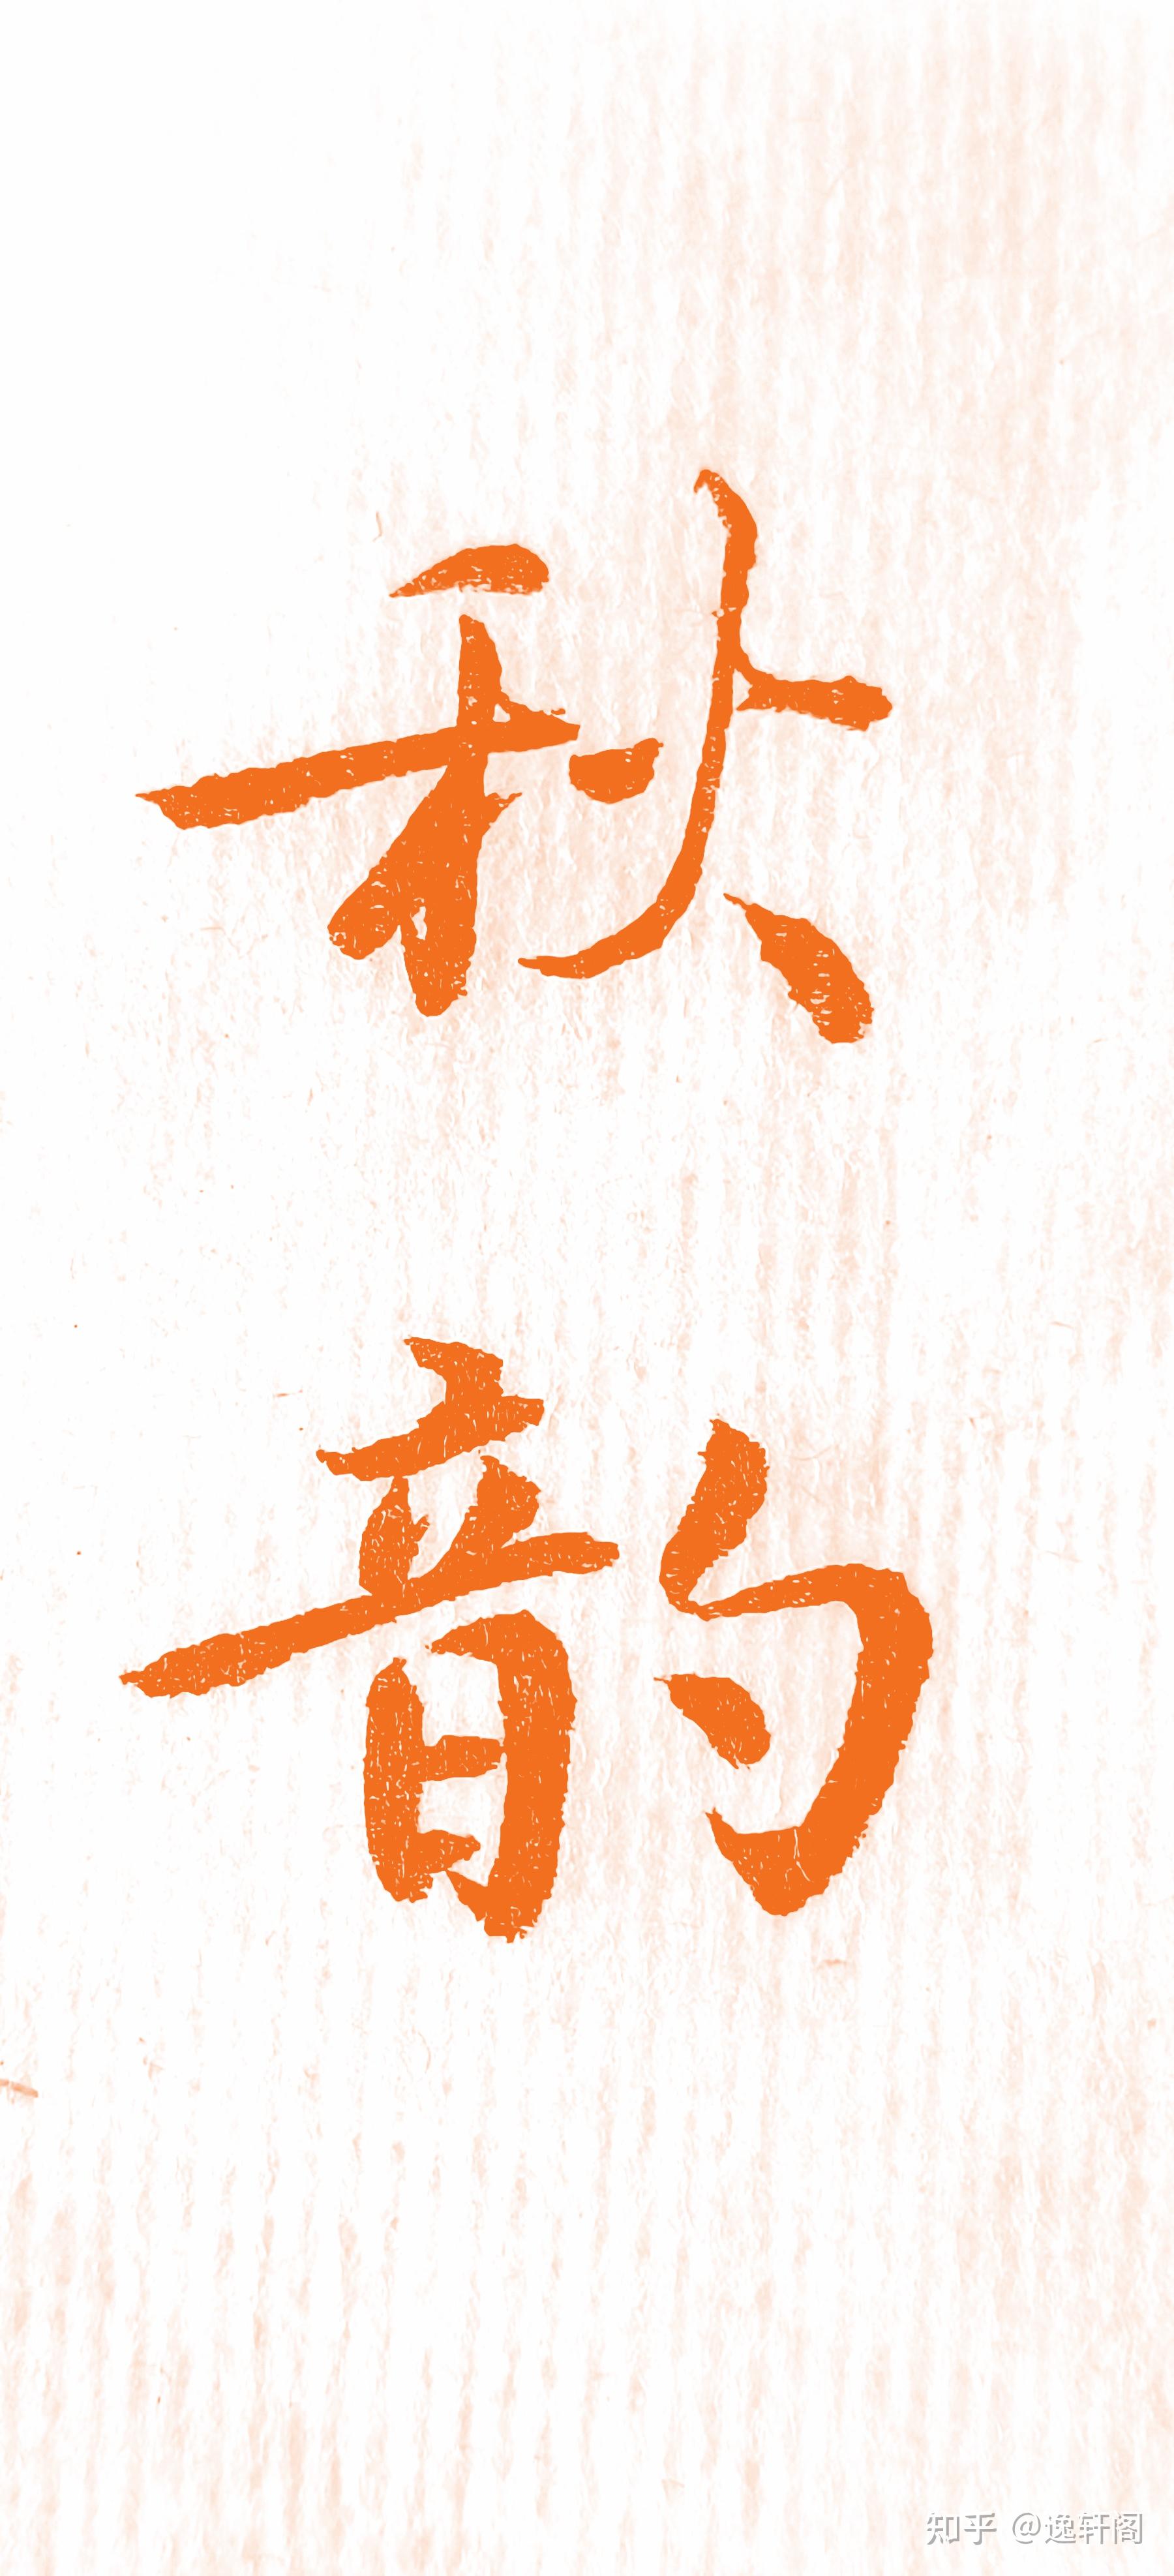 秋韵
知乎 @逸轩阁